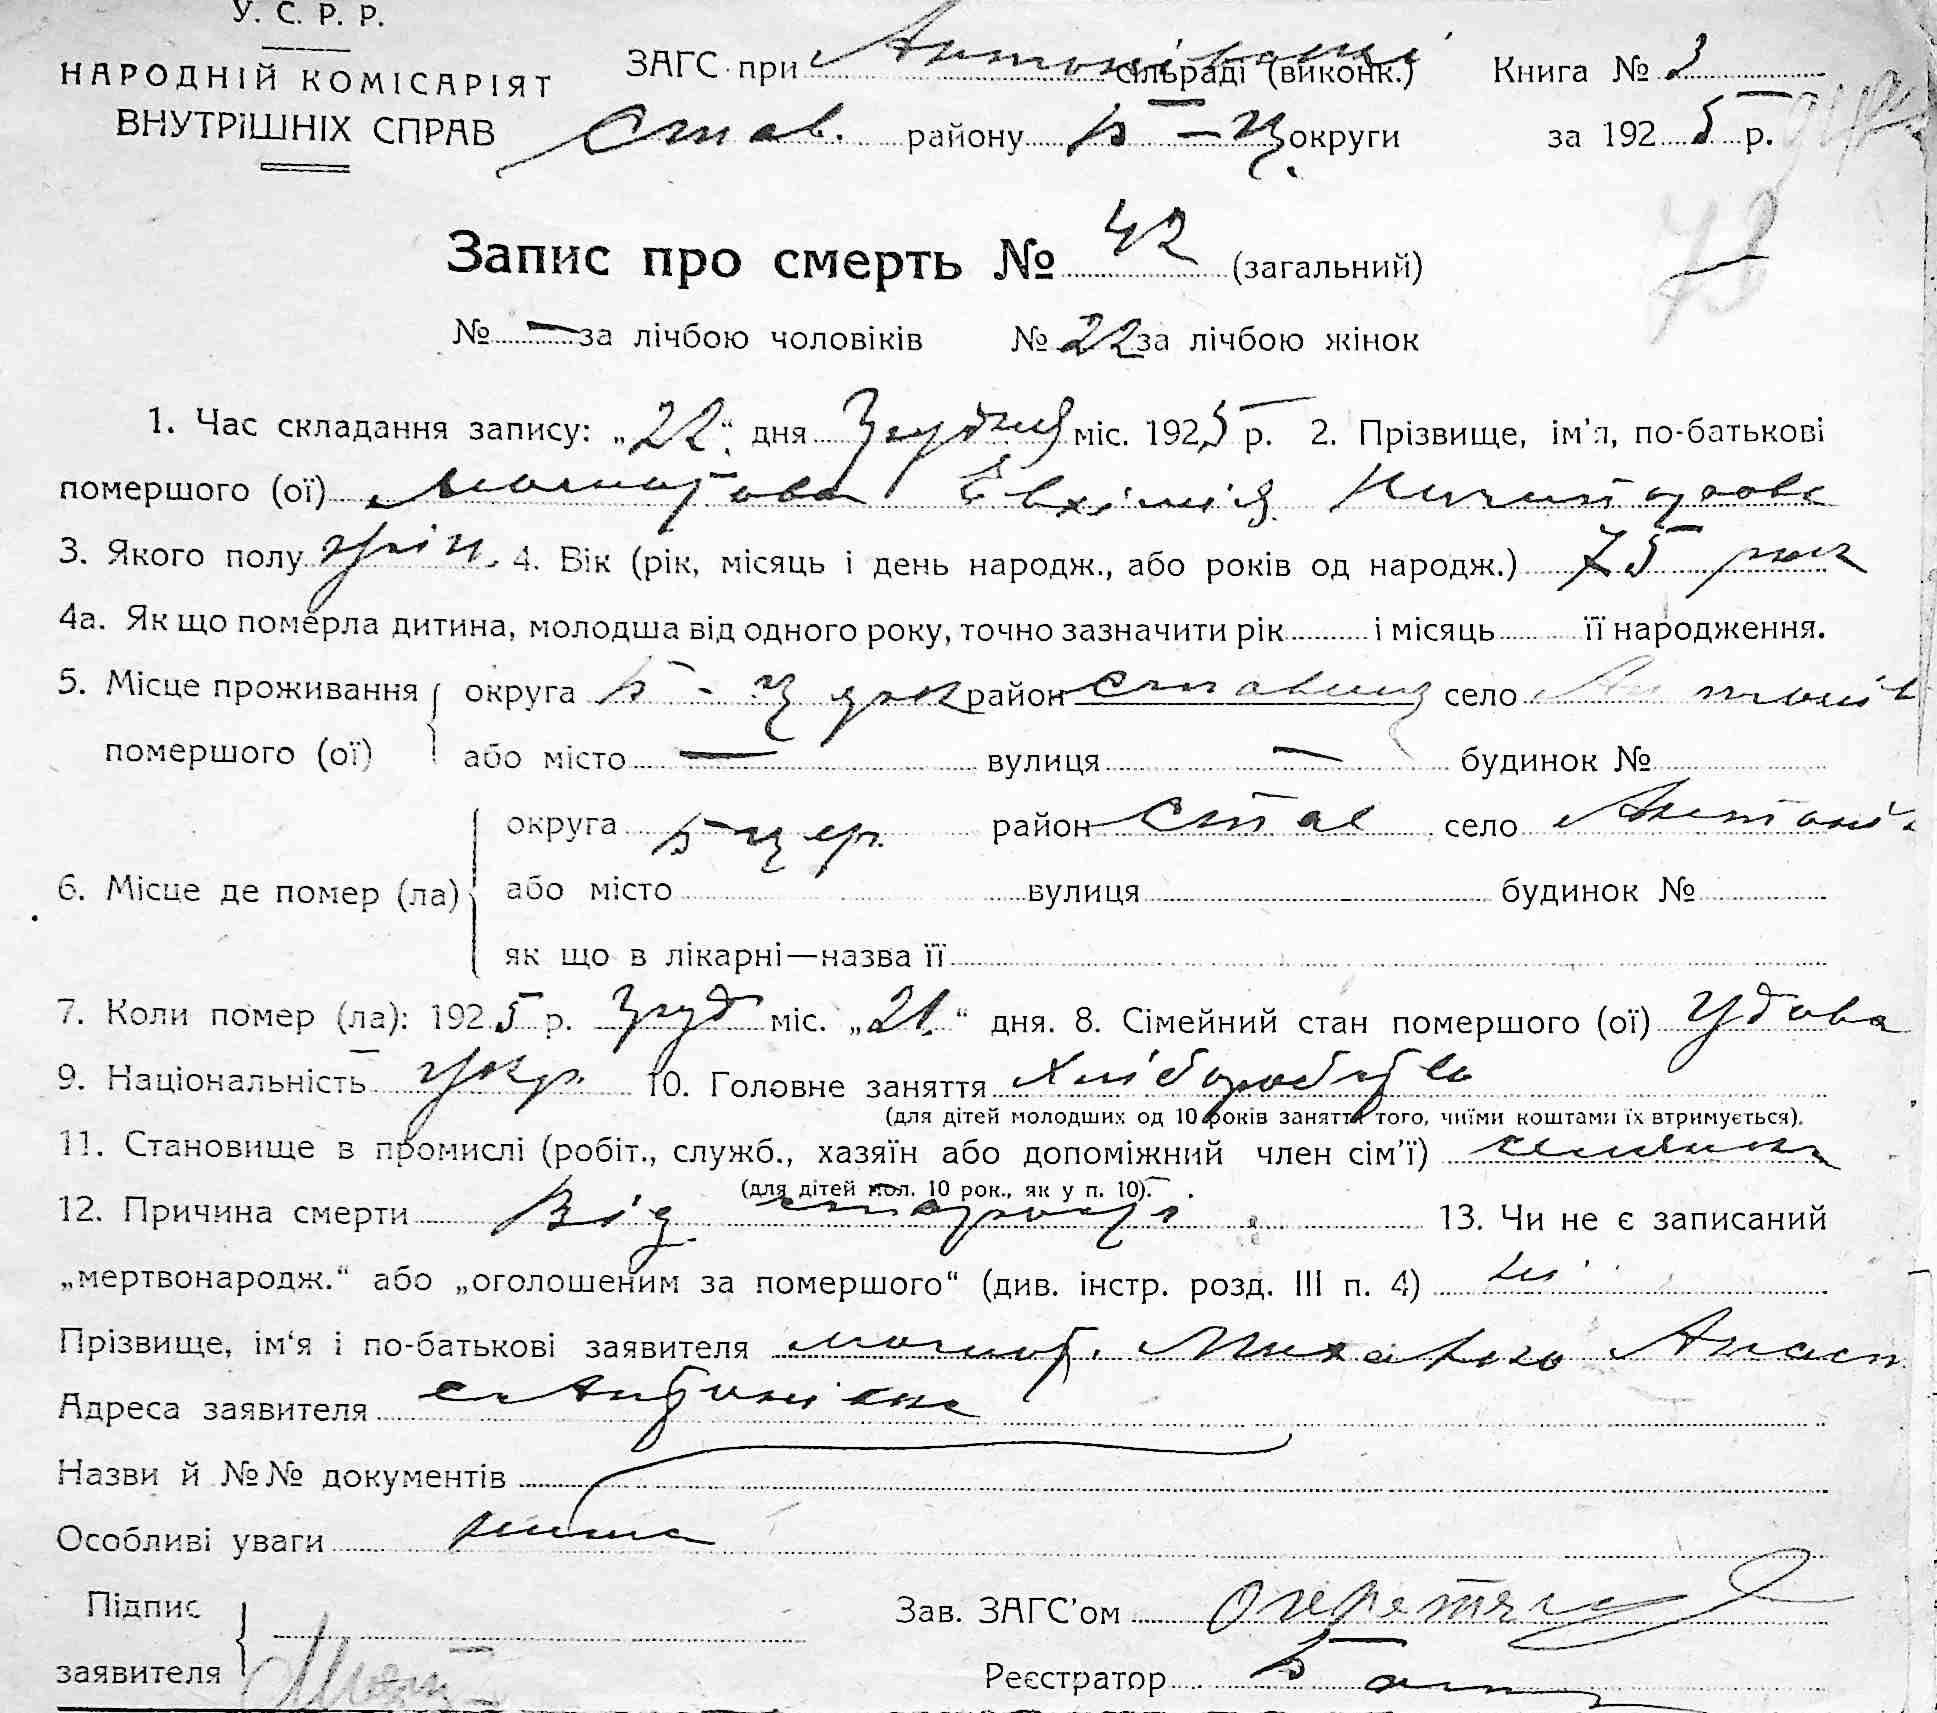 У. С. Р. Р.
НАРОДНІЙ КОМІСАРІЯТ
ВНУТРІШНІХ СПРАВ
ЗАГС при Антонівській сільраді (виконк.) Книга № 3
Став. району Б-Ц. округи за 1925 р.
Запис про смерть № 42 (загальний)
№ — за лічбою чоловіків № 22 за лічбою жінок
1. Час складання запису: „22“ дня Грудня міс. 1925 р. 2. Прізвище, ім'я, по-батькові
помершого (ої) Евхімія
3. Якого полу жін. 4. Вік (рік, місяць і день народж., або років од народж.) 75 рок
4а. Як що померла дитина, молодша від одного року, точно зазначити рік і місяць її народження.
5. Місце проживання помершого (ої) округа Б-Ц район село Антонів
або місто — вулиця — будинок №
6. Місце де помер (ла) округа Б-Цер. район Став село Антонів
або місто вулиця будинок №
як що в лікарні—назва її
7. Коли помер (ла): 1925 р. Груд міс. „21.“ дня. 8. Сімейний стан помершого (ої) Удова
9. Національність Укр. 10. Головне заняття Хліборобство
(для дітей молодших од 10 років заняття того, чиїми коштами їх втримується).
11. Становище в промислі (робіт., служб., хазяїн або допоміжний член сім'ї)
(для дітей мол. 10 рок., як у п. 10).
12. Причина смерти Від старости 13. Чи не є записаний
„мертвонародж.“ або „оголошеним за помершого“ (див. інстр. розд. III п. 4) ні
Прізвище, ім'я і по-батькові заявителя
Адреса заявителя
Назви й №№ документів
Особливі уваги нима
Підпис заявителя
Зав. ЗАГС'ом
Реєстратор